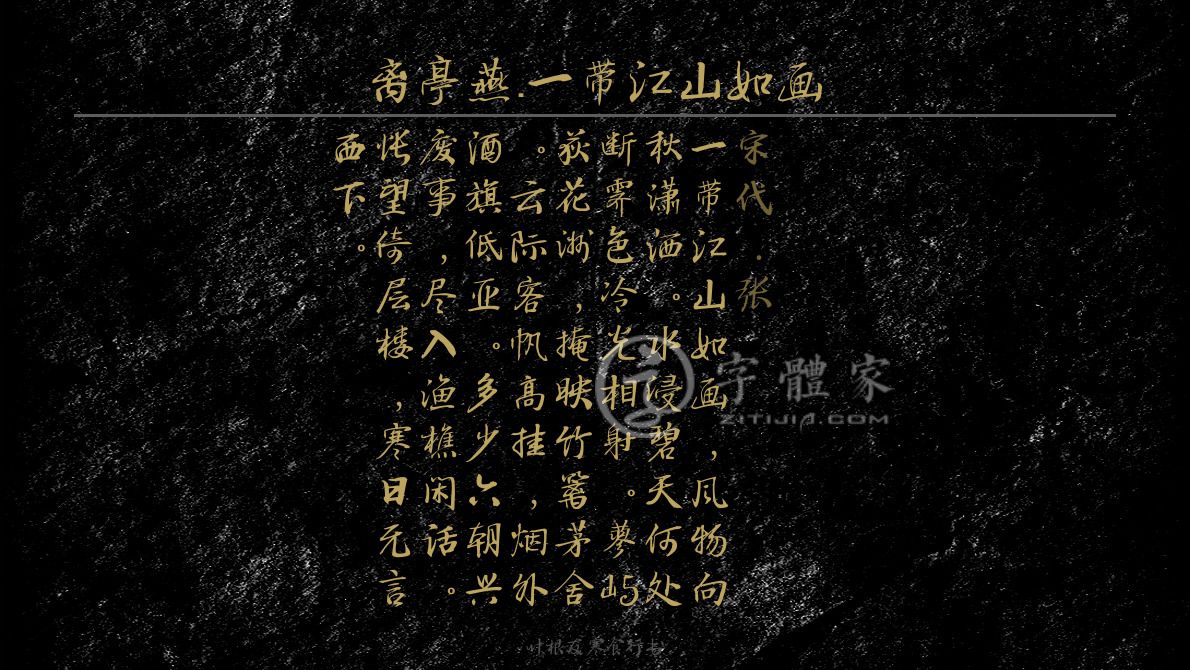 离亭燕.一带江山如画
宋代.张
一带江山如画，风物向
秋潇洒。水浸碧天何处
断霁色冷光相射。蓼屿
荻花洲，掩映竹篱茅舍
。云际客帆高挂，烟外
酒旗低亚。多少六朝兴
废事，尽入渔樵闲话。
怅望倚层楼，寒日无言
西下。
字體家
ZITIJIA.COM
叶根友寒食行书